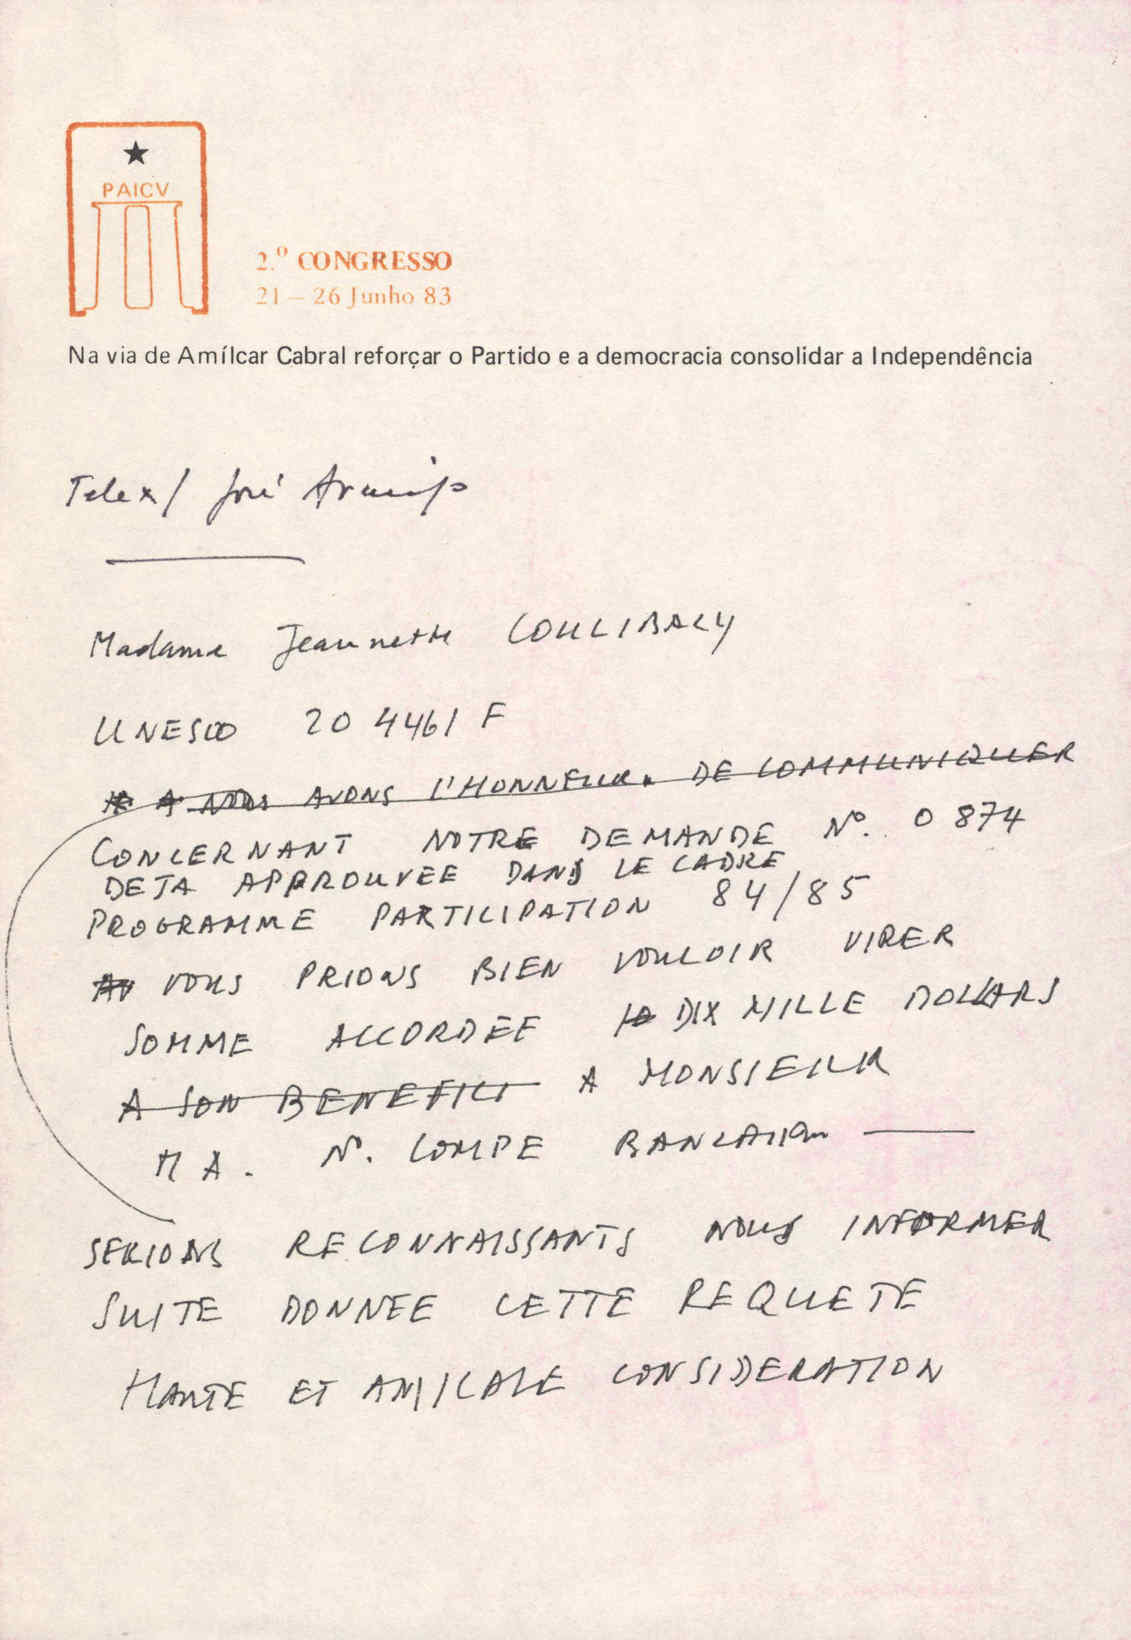 PAICV
2.º CONGRESSO
21 – 26 Junho 83
Na via de Amílcar Cabral reforçar o Partido e a democracia consolidar a Independência
Telex/ José Araújo
Madame Jeannette COULIBALY
UNESCO 20 4461 F
A NOUS AVONS L'HONNEUR. DE COMMUNIQUER
CONCERNANT NOTRE DEMANDE Nº. 0874
DEJA APPROUVEE DANS LE CADRE
PROGRAMME PARTICIPATION 84/85
VOUS PRIONS BIEN VOULOIR VIRER
SOMME ACCORDÉE 10 DIX MILLE DOLLARS
A SON BENEFICI A MONSIEUR
M A. Nº. COMPE BANCAIRE
SERIONS RECONNAISSANTS NOUS INFORMER
SUITE DONNEE CETTE REQUETE
HAUTE ET AMICALE CONSIDERATION